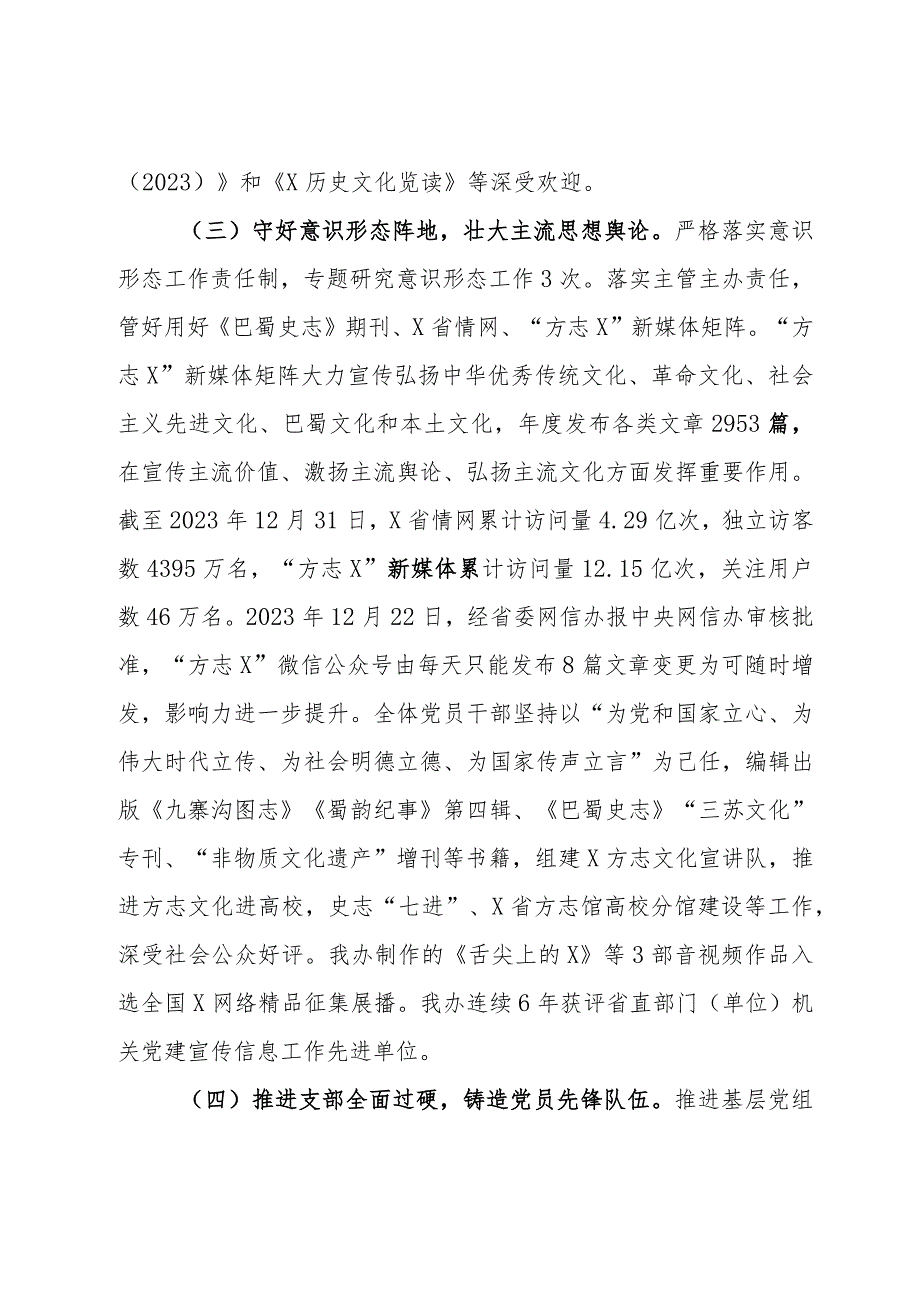 （2023）》和《X 历史文化览读》等深受欢迎。
（三）守好意识形态阵地，壮大主流思想舆论。严格落实意识
形态工作责任制，专题研究意识形态工作 3 次。落实主管主办责任，
管好用好《巴蜀史志》期刊、X 省情网、“方志 X”新媒体矩阵。“方
志 X”新媒体矩阵大力宣传弘扬中华优秀传统文化、革命文化、社会
主义先进文化、巴蜀文化和本土文化，年度发布各类文章 2953 篇，
在宣传主流价值、激扬主流舆论、弘扬主流文化方面发挥重要作用。
截至 2023 年 12 月 31 日，X 省情网累计访问量 4.29 亿次，独立访客
数 4395 万名，“方志 X”新媒体累计访问量 12.15 亿次，关注用户
数 46 万名。2023 年 12 月 22 日，经省委网信办报中央网信办审核批
准，“方志 X”微信公众号由每天只能发布 8 篇文章变更为可随时增
发，影响力进一步提升。全体党员干部坚持以“为党和国家立心、为
伟大时代立传、为社会明德立德、为国家传声立言”为己任，编辑出
版《九寨沟图志》《蜀韵纪事》第四辑、《巴蜀史志》“三苏文化”
专刊、“非物质文化遗产”增刊等书籍，组建 X 方志文化宣讲队，推
进方志文化进高校，史志“七进”、X 省方志馆高校分馆建设等工作，
深受社会公众好评。我办制作的《舌尖上的 X》等 3 部音视频作品入
选全国 X 网络精品征集展播。我办连续 6 年获评省直部门（单位）机
关党建宣传信息工作先进单位。
（四）推进支部全面过硬，铸造党员先锋队伍。推进基层党组